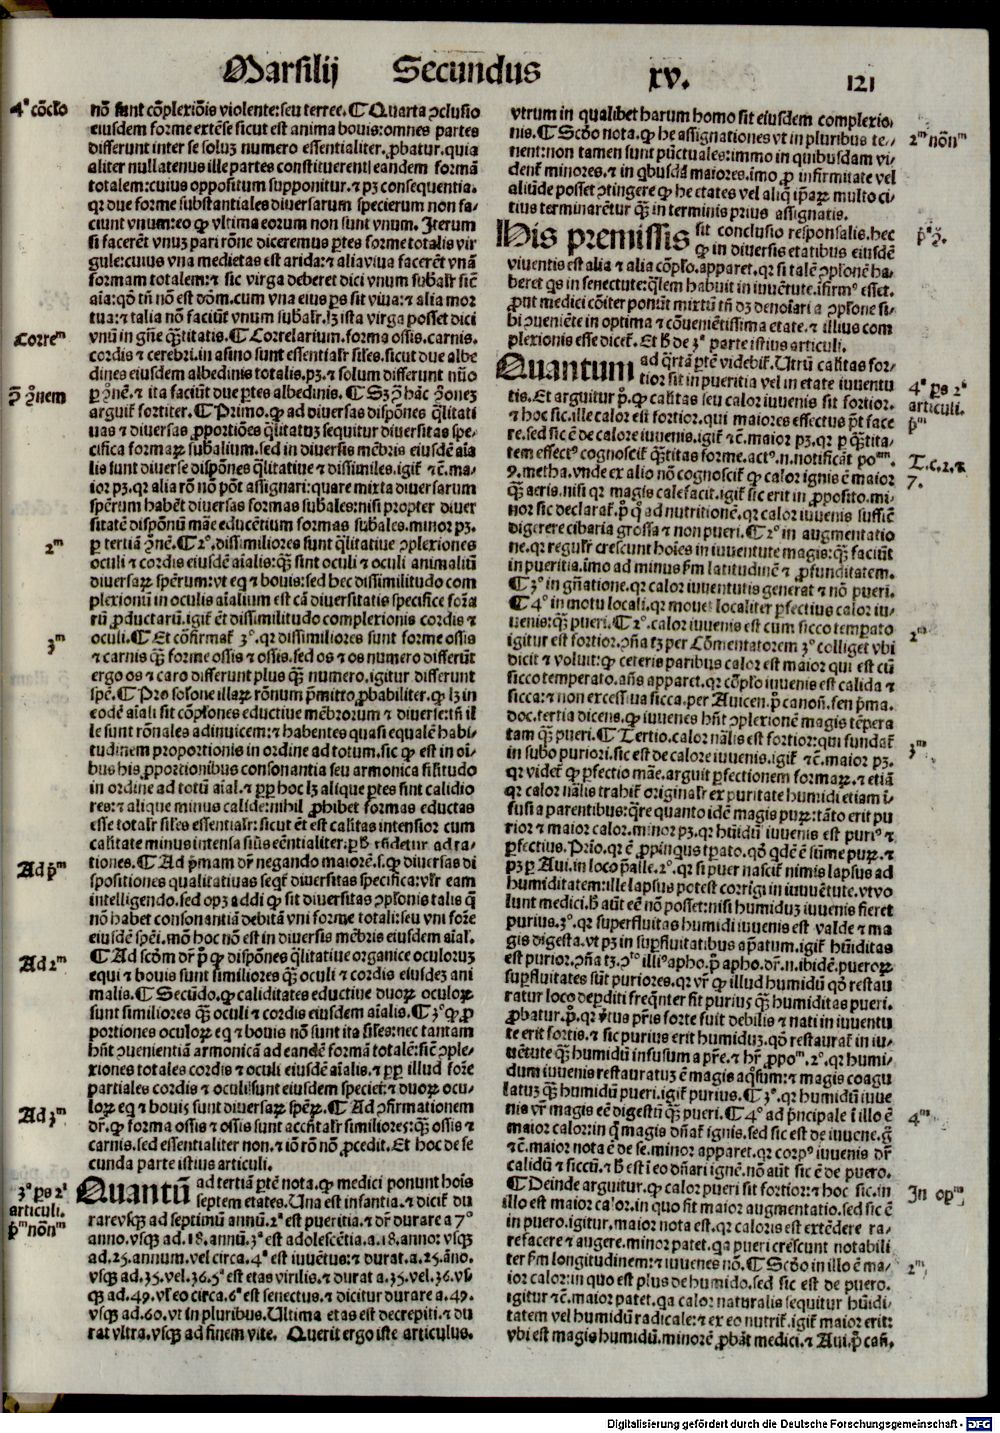 Marsilij Secundus xv. 121
4ª cõclo
nõ sunt cõplexiõis violente: seu terree. ¶ Quarta ꝯclusio
eiusdem forme extẽse sicut est anima bouis: omnes partes
differunt inter se soluʒ numero essentialiter. ꝓbatur. quia
aliter nullatenus ille partes constituerent eandem formã
totalem: cuius oppositum supponitur. ⁊ pʒ consequentia.
qꝛ due forme substantiales diuersarum specierum non fa-
ciunt vnum: eo ꝙ vltima eorum non sunt vnum. Iterum
si facerẽt vnuʒ pari rõne diceremus ꝑtes forme totalis vir
gule: cuius vna medietas est arida: ⁊ alia viua facerẽt vnã
formam totalem: ⁊ sic virga deberet dici vnum subalr̃ sicẽ
aĩa: qõ tñ nõ est dõm. cum vna eius ꝑs sit viua: ⁊ alia mor
tua: ⁊ talia nõ faciũt vnum subalr̃. lʒ ista virga posset dici
Corrẽᵐ
vnũ in gñe q̃titatis. ¶ Correlarium. forma ossis. carnis.
cordis ⁊ cerebri. in asino sunt essentialr̃ siles. sicut due albe
dines eiusdem albedinis totalis. pʒ. ⁊ solum differunt nũo
ꝑ ꝯñẽ. ⁊ ita faciũt due ꝑtes albedinis. ¶ Sʒ ꝯ̃ hãc ꝯonẽʒ
arguit̃ fortiter. ¶ Primo. ꝙ ad diuersas dispõnes q̃litati
uas ⁊ diuersas ꝓportiões q̃litatuʒ sequitur diuersitas spe-
cifica formaꝝ subalium. sed in diuersis mẽbris eiusdẽ aĩa
lis sunt diuerse dispõnes q̃litatiue ⁊ dissimiles. igit̃ ⁊c̃. ma-
ior pʒ. qꝛ alia rõ nõ põt assignari: quare mixta diuersarum
spẽrum habẽt diuersas formas subales: nisi propter diuer
sitatẽ dispõnũ mãe educẽtium formas subales. minor pʒ.
2ᵐ
ꝑ tertiã ꝯñẽ. ¶ 2º. dissimiliores sunt q̃litatiue ꝯplexiones
oculi ⁊ cordis eiusdẽ aĩalis: q̃ʒ sint oculi ⁊ oculi animaliũ
diuersaꝝ spẽrum: vt eq̃ ⁊ bouis: sed hec dissimilitudo com
plexionũ in oculis aĩalium est cã diuersitatis specifice forᷓa
rũ ꝓductarũ. igit̃ ẽt dissimilitudo complexionis cordis ⁊
3ᵐ
oculi. ¶ Et cõfirmat̃ 3º. qꝛ dissimiliores sunt forme ossis
⁊ carnis q̃ʒ forme ossis ⁊ ossis. sed os ⁊ os numero differũt
ergo os ⁊ caro differunt plus q̃ʒ numero. igitur differunt
spẽ. ¶ Pro solone illaꝝ rõnum p̃mitto ꝓbabiliter. ꝙ lʒ in
eodẽ aĩali sit cõplones eductiue mẽbrorum ⁊ diuerse: tñ il
le sunt rõnales adinuicem: ⁊ habentes quasi equalẽ habi-
tudinem proportionis in ordine ad totum. sic ꝙ est in oĩ-
bus his ꝓportionibus consonantia seu armonica silitudo
in ordine ad totũ aĩal. ⁊ ꝓp̃ hoc lʒ alique ꝑtes sint calidio
res: ⁊ alique minus calide: nihil ꝓhibet formas eductas
esse totalr̃ siles essentialr̃: sicut ẽt est calitas intensior cum
calitate minus intensa silis eẽntialiter. ꝑ h̃ rñdetur ad ra-
Ad pᵐ
tiones. ¶ Ad p̃mam dr̃ negando maiorẽ. s. ꝙ diuersas di
spositiones qualitatiuas seqt̃ diuersitas specifica: vlr̃ eam
intelligendo. sed opʒ addi ꝙ sit diuersitas ꝯplonis talis q̃
nõ habet consonantiã debitã vni forme totali: seu vni forᷓe
eiusdẽ spẽi. mõ hoc nõ est in diuersis mẽbris eiusdem aĩal.
Ad 2ᵐ
¶ Ad scõm dr̃ p̃ ꝙ dispõnes q̃litatiue organice oculoruʒ
equi ⁊ bouis sunt similiores q̃ʒ oculi ⁊ cordis eiusdeʒ ani
malis. ¶ Secũdo. ꝙ caliditates eductiue duoꝝ oculoꝝ
sunt similiores q̃ʒ oculi ⁊ cordis eiusdem aĩalis. ¶ 3º ꝙ ꝓ
portiones oculoꝝ eq̃ ⁊ bouis nõ sunt ita siles: nec tantam
hñt ꝯuenientiã armonicã ad eandẽ formã totalẽ: sicẽ ꝯple-
xiones totales cordis ⁊ oculi eiusdẽ aĩalis. ⁊ ꝓp̃ illud forᷓe
partiales cordis ⁊ oculi sunt eiusdem speciei: ⁊ duoꝝ ocu-
Ad 3ᵐ
loꝝ eq̃ ⁊ bouis sunt diuersaꝝ spẽꝝ. ¶ Ad ꝯfirmationem
dr̃. ꝙ forma ossis ⁊ ossis sunt accñtalr̃ similiores: q̃ʒ ossis ⁊
carnis. sed essentialiter non. ⁊ iõ rõ nõ ꝓcedit. Et hoc de se
cunda parte istius articuli.
3ª ꝑs 2ⁱ articuli.
pᵐ nõnᵐ
Quantũ ad tertiã ꝑtẽ nota. ꝙ medici ponunt hoĩs
septem etates. Una est infantia. ⁊ dicit̃ du
rare vsq̃ʒ ad septimũ annũ. 2ª est pueritia. ⁊ dr̃ durare a 7º
anno. vsq̃ʒ ad .18. annũ. 3ª est adolescẽtia. a .18. anno: vsq̃ʒ
ad .25. annum. vel circa. 4ª est iuuẽtus: ⁊ durat̃. a .25. ãno.
vsq̃ʒ ad .35. vel .36. 5ª est etas virilis. ⁊ durat a .35. vel .36. vs̃
q̃ʒ ad .49. vl̃ eo circa. 6ª est senectus. ⁊ dicitur durare a .49.
vsq̃ʒ ad .60. vt in pluribus. Ultima etas est decrepiti. ⁊ du
rat vltra. vsq̃ʒ ad finem vite. Querit ergo iste articulus.
vtrum in qualibet harum homo sit eiusdem complexio-
2ᵐ nõnᵐ
nis. ¶ Scõo nota. ꝙ he assignationes vt in pluribus te-
nent: non tamen sunt pũctuales: immo in quibusdam vi-
dent̃ minores. ⁊ in qbusdã maiores. imo ꝓ infirmitate vel
aliũde posset ꝯtingere ꝙ he etates vel aliq̃ ip̃aꝝ multo ci-
tius terminarẽtur q̃ʒ in terminis prius assignatis.
pª ꝯ̃.
His premissis sit conclusio responsalis. hec
ꝙ in diuersis etatibus eiusdẽ
viuentis est alia ⁊ alia cõplo. apparet. qꝛ si talẽ ꝯplonẽ ha-
beret qs in senectute: q̃lem habuit in iuuẽtute. ifirmº esset.
ꝓut medici cõiter ponũt mixtũ tñ dʒ denoĩari a ꝯplone si-
bi ꝯueniẽte in optima ⁊ cõueniẽtissima etate. ⁊ illius com
plexionis esse dicet̃. Et h̃ de 3ª parte istius articuli.
4ª ꝑs 2ⁱ articuli.
pᵐ
Quantum ad q̃rtã ꝑtẽ videbit̃. Utrũ calitas for-
tior sit in pueritia vel in etate iuuentu
tis. Et arguitur p̃. ꝙ calitas seu calor iuuenis sit fortior.
⁊ hoc sic. ille calor est fortior. qui maiores effectus p̃t face
re. sed sic ẽ de calore iuuenis. igit̃ ⁊c̃. maior pʒ. qꝛ ꝑ q̃titа-
T. c. 2. ⁊ 7.
tem effectꝰ cognoscit̃ q̃titas forme. actꝰ. n. notificãt poᵐ.
9. metha. vnde ex alio nõ cognoscit̃ ꝙ calor ignis ẽ maior
q̃ʒ aeris. nisi qꝛ magis calefacit. igit̃ sic erit in ꝓposito. mi-
nor sic declarat̃. p̃ q̃ ad nutritionẽ. qꝛ calor iuuenis sufficit̃
digerere cibaria grossa ⁊ non pueri. ¶ 2º in augmentatio
ne. qꝛ regulr̃ crescunt hoĩes in iuuentute magis: q̃ʒ faciũt
in pueritia. imo ad minus s̃m latitudinẽ ⁊ ꝓfunditatem.
¶ 3º in gñatione. qꝛ calor iuuentutis generat ⁊ nõ pueri.
¶ 4º in motu locali. qꝛ mouet localiter ꝑfectius calor iu-
2ᵐ
uenis: q̃ʒ pueri. ¶ 2º. calor iuuenis est cum sicco temperato
igitur est fortior. ꝯña tʒ per Cõmentatorem 3º colliget vbi
dicit ⁊ voluit: ꝙ ceteris paribus calor est maior qui est cũ
sicco temperato. añs apparet. qꝛ cõplo iuuenis est calida ⁊
sicca: ⁊ non excessiua sicca. per Auicen. p̃ canoñ. fen p̃ma.
doc. tertia dicens. ꝙ iuuenes hñt ꝯplexionẽ magis tẽpera
3ᵐ
tam q̃ʒ pueri. ¶ Tertio. calor nãlis est fortior: qui fundat̃
in subo puriori. sic est de calore iuuenis. igit̃ ⁊c̃. maior pʒ.
qꝛ videt̃ ꝙ ꝑfectio mãe. arguit ꝑfectionem formaꝝ. ⁊ etiã
qꝛ calor nãlis trahit̃ originalr̃ ex puritate humidi etiam ĩ-
fusi a parentibus: q̃re quanto idẽ magis puꝝ: tãto erit pu
rior ⁊ maior calor. minor pʒ. qꝛ hũidũ iuuenis est puriꝰ ⁊
ꝑfectius. Prio. qꝛ ẽ ꝓpinquʒ tp̃ato. qõ qdẽ ẽ sũme puꝝ. ⁊
pʒ ꝑ Aui. in loco p̃alle. 2º. qꝛ si puer nascit̃ nimis lapsus ad
humiditatem: ille lapsus potest corrigi in iuuẽtute. vt vo
lunt medici. h̃ aũt eẽ nõ posset: nisi humiduʒ iuuenis fieret
purius. 3º. qꝛ superfluitas humidi iuuenis est valde ⁊ ma
gis digesta. vt pʒ in suꝑfluitatibus aꝑatum. igit̃ hũiditas
est purior. ꝯña tʒ. ꝯ̃º illiꝰ apho. p̃ apho. dr̃. n. ibidẽ. pueroꝝ
suꝑfluitates sũt puriores. qꝛ vr̃ ꝙ illud humidũ qõ restau
ratur loco deꝑditi freq̃nter sit puriuʒ q̃ʒ humiditas pueri.
ꝓbatur. p̃. qꝛ v̾tus pr̃is forte fuit debilis ⁊ nati in iuuentu
te erit fortis. ⁊ sic purius erit humiduʒ. qõ restaurat̃ in iu-
uẽtute q̃ʒ humidũ infusum a pr̃e. ⁊ hr̃ ꝓpoᵐ. 2º. qꝛ humi-
dum iuuenis restauratuʒ ẽ magis aq̃sum: ⁊ magis coagu
latuʒ q̃ʒ humidũ pueri. igit̃ purius. ¶ 3º. qꝛ humidũ iuue
4ᵐ
nis vr̃ magis eẽ digestũ q̃ʒ pueri. ¶ 4º ad p̃ncipale ĩ illo ẽ
maior calor: in q̃ magis dñat̃ ignis. sed sic est de iuuene. g̃
⁊c̃. maior nota ẽ de se. minor apparet. qꝛ corpꝰ iuuenis dr̃
calidũ ⁊ siccũ. ⁊ h̃ est ĩ eo dñari ignẽ. nõ aũt sic ẽ de puero.
In opᵐ
¶ Deinde arguitur. ꝙ calor pueri sit fortior: ⁊ hoc sic. in
illo est maior calor. in quo sit maior augmentatio. sed sic ẽ
in puero. igitur. maior nota est. qꝛ caloris est extẽdere ra-
refacere ⁊ augere. minor patet. qa pueri crescunt notabili
2ᵐ
ter s̃m longitudinem: ⁊ iuuenes nõ. ¶ Scõo in illo ẽ ma-
ior calor: in quo est plus de humido. sed sic est de puero.
igitur ⁊c̃. maior patet. qa calor naturalis sequitur hũidi-
tatem vel humidũ radicale: ⁊ ex eo nutrit̃. igit̃ maior erit:
vbi est magis humidũ. minorẽ ꝓbãt medici. ⁊ Aui. p̃ cañ.
Digitalisierung gefördert durch die Deutsche Forschungsgemeinschaft - DFG